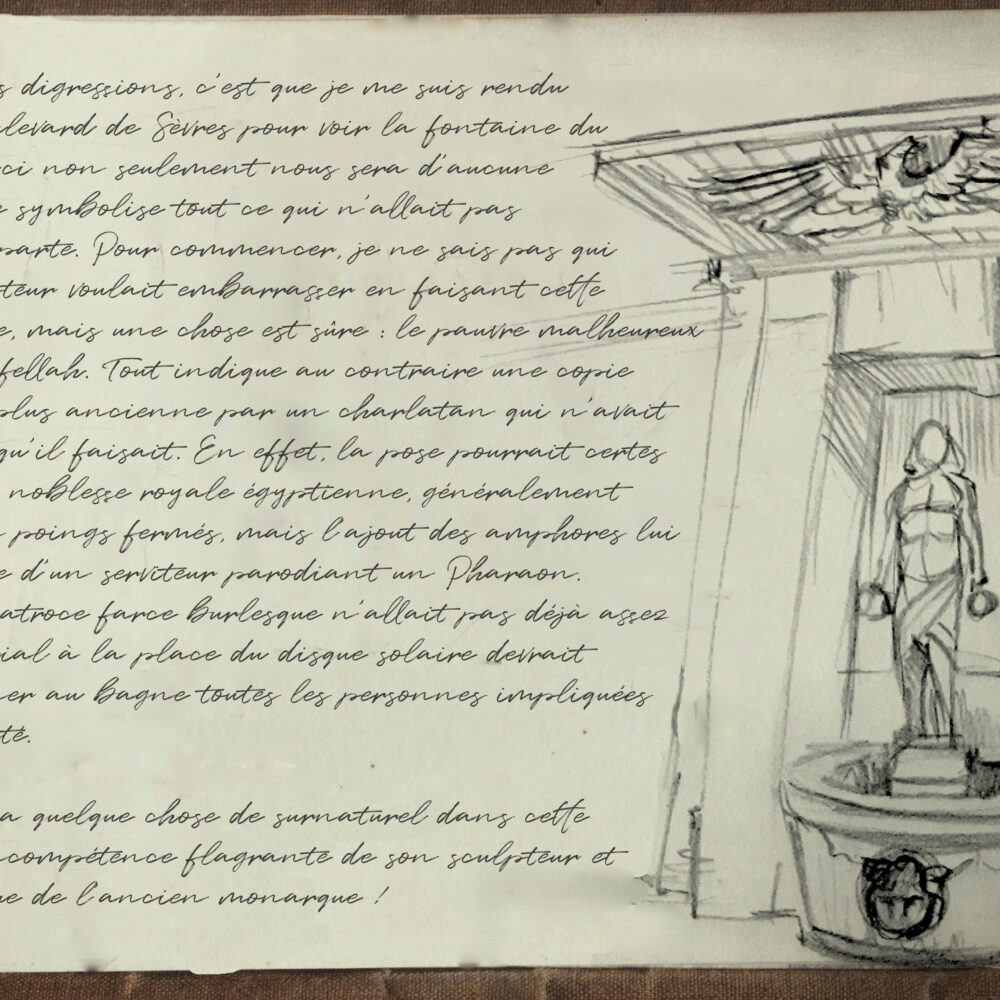 s digressions, c'est que je me suis rendu
levard de Sèvres pour voir la fontaine du
ci non seulement nous sera d'aucune
e symbolise tout ce qui n'allait pas
parte. Pour commencer, je ne sais pas qui
teur voulait embarrasser en faisant cette
e, mais une chose est sûre : le pauvre malheureux
fellah. Tout indique au contraire une copie
plus ancienne par un charlatan qui n'avait
qu'il faisait. En effet, la pose pourrait certes
noblesse royale égyptienne, généralement
poings fermés, mais l'ajout des amphores lui
e d'un serviteur parodiant un Pharaon.
atroce farce burlesque n'allait pas déjà assez
ial à la place du disque solaire devrait
er au bagne toutes les personnes impliquées
té.
a quelque chose de surnaturel dans cette
compétence flagrante de son sculpteur et
ue de l'ancien monarque !